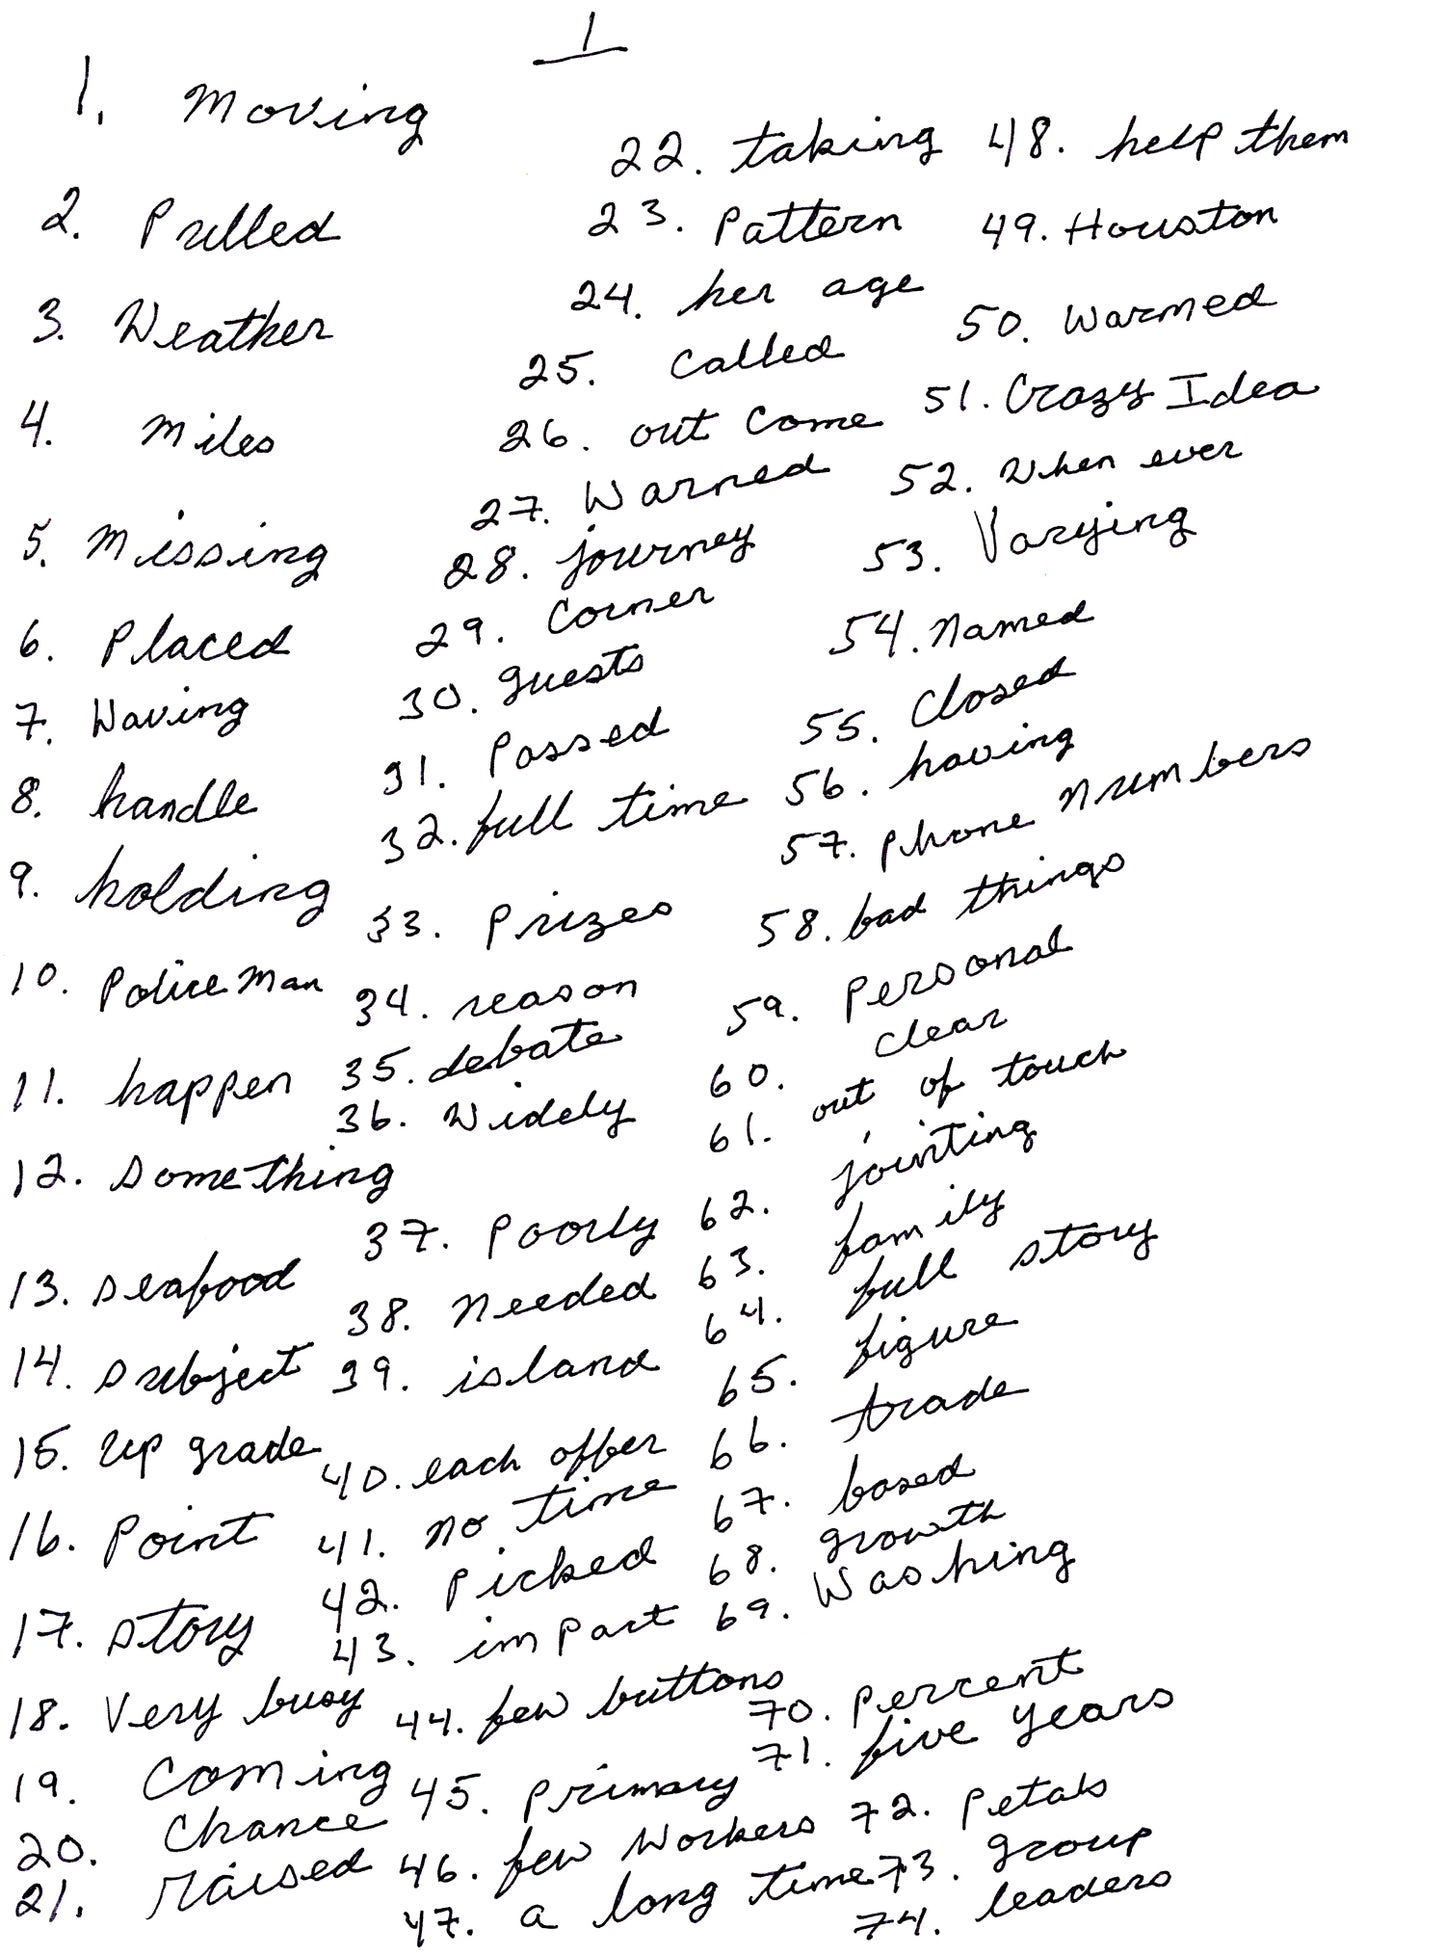 1
1. Moving
2. Pulled
3. Weather
4. Miles
5. Missing
6. Placed
7. Waving
8. handle
9. holding
10. Police Man
11. happen
12. something
13. seafood
14. subject
15. up grade
16. Point
17. story
18. Very busy
19. Coming
20. Chance
21. raised
22. taking
23. Pattern
24. her age
25. Called
26. out Come
27. Warned
28. journey
29. Corner
30. guests
31. Passed
32. full time
33. Prizes
34. reason
35. debate
36. Widely
37. Poorly
38. Needed
39. island
40. each offer
41. no time
42. Picked
43. impact
44. few buttons
45. Primary
46. few Workers
47. a long time
48. help them
49. Houston
50. Warmed
51. Crazy Idea
52. When ever
53. Varying
54. Named
55. Closed
56. having
57. Phone Numbers
58. bad things
59. Personal
60. Clear
61. out of touch
62. jointing
63. family
64. full story
65. figure
66. trade
67. based
68. growth
69. Washing
70. Percent
71. five years
72. Petals
73. group
74. leaders